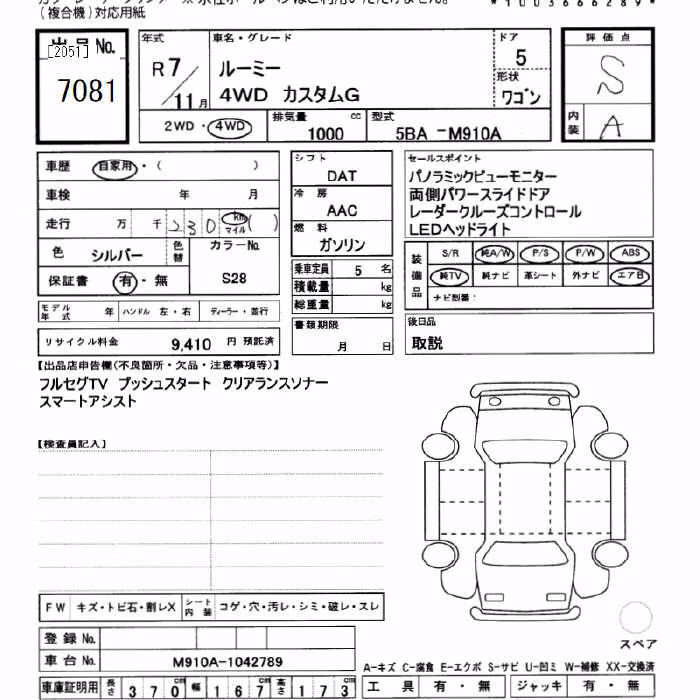 (複合機)対応用紙
*1003666289*
出品No.
[2051]
7081
年式
R7/11月
車名・グレード
ルーミー
4WD カスタムG
ドア
5
形状
ワゴン
評価点
S
内装
A
2WD・4WD
排気量 1000 cc
型式 5BA-M910A
車歴 自家用・( )
車検 年 月
走行 万 千 230 km マイル ( )
色 シルバー 色替
カラーNo. S28
保証書 有・無
モデル年式 年 ハンドル 左・右 ディーラー・並行
リサイクル料金 9,410 円 預託済
シフト
DAT
冷房
AAC
燃料
ガソリン
乗車定員 5 名
積載量 kg
総重量 kg
書類期限
月 日
セールスポイント
パノラミックビューモニター
両側パワースライドドア
レーダークルーズコントロール
LEDヘッドライト
装備品
S/R 純A/W P/S P/W ABS
純TV 純ナビ 革シート 外ナビ エアB
ナビ型番:
後日品
取説
【出品店申告欄(不良箇所・欠品・注意事項等)】
フルセグTV プッシュスタート クリアランスソナー
スマートアシスト
【検査員記入】
FW キズ・トビ石・割レX シート内装 コゲ・穴・汚レ・シミ・破レ・スレ
登録No.
車台No. M910A-1042789
車庫証明用 長さ 370cm 幅 167cm 高さ 173cm
スペア
A-キズ C-腐食 E-エクボ S-サビ U-凹ミ W-補修 XX-交換済
工具 有・無 ジャッキ 有・無